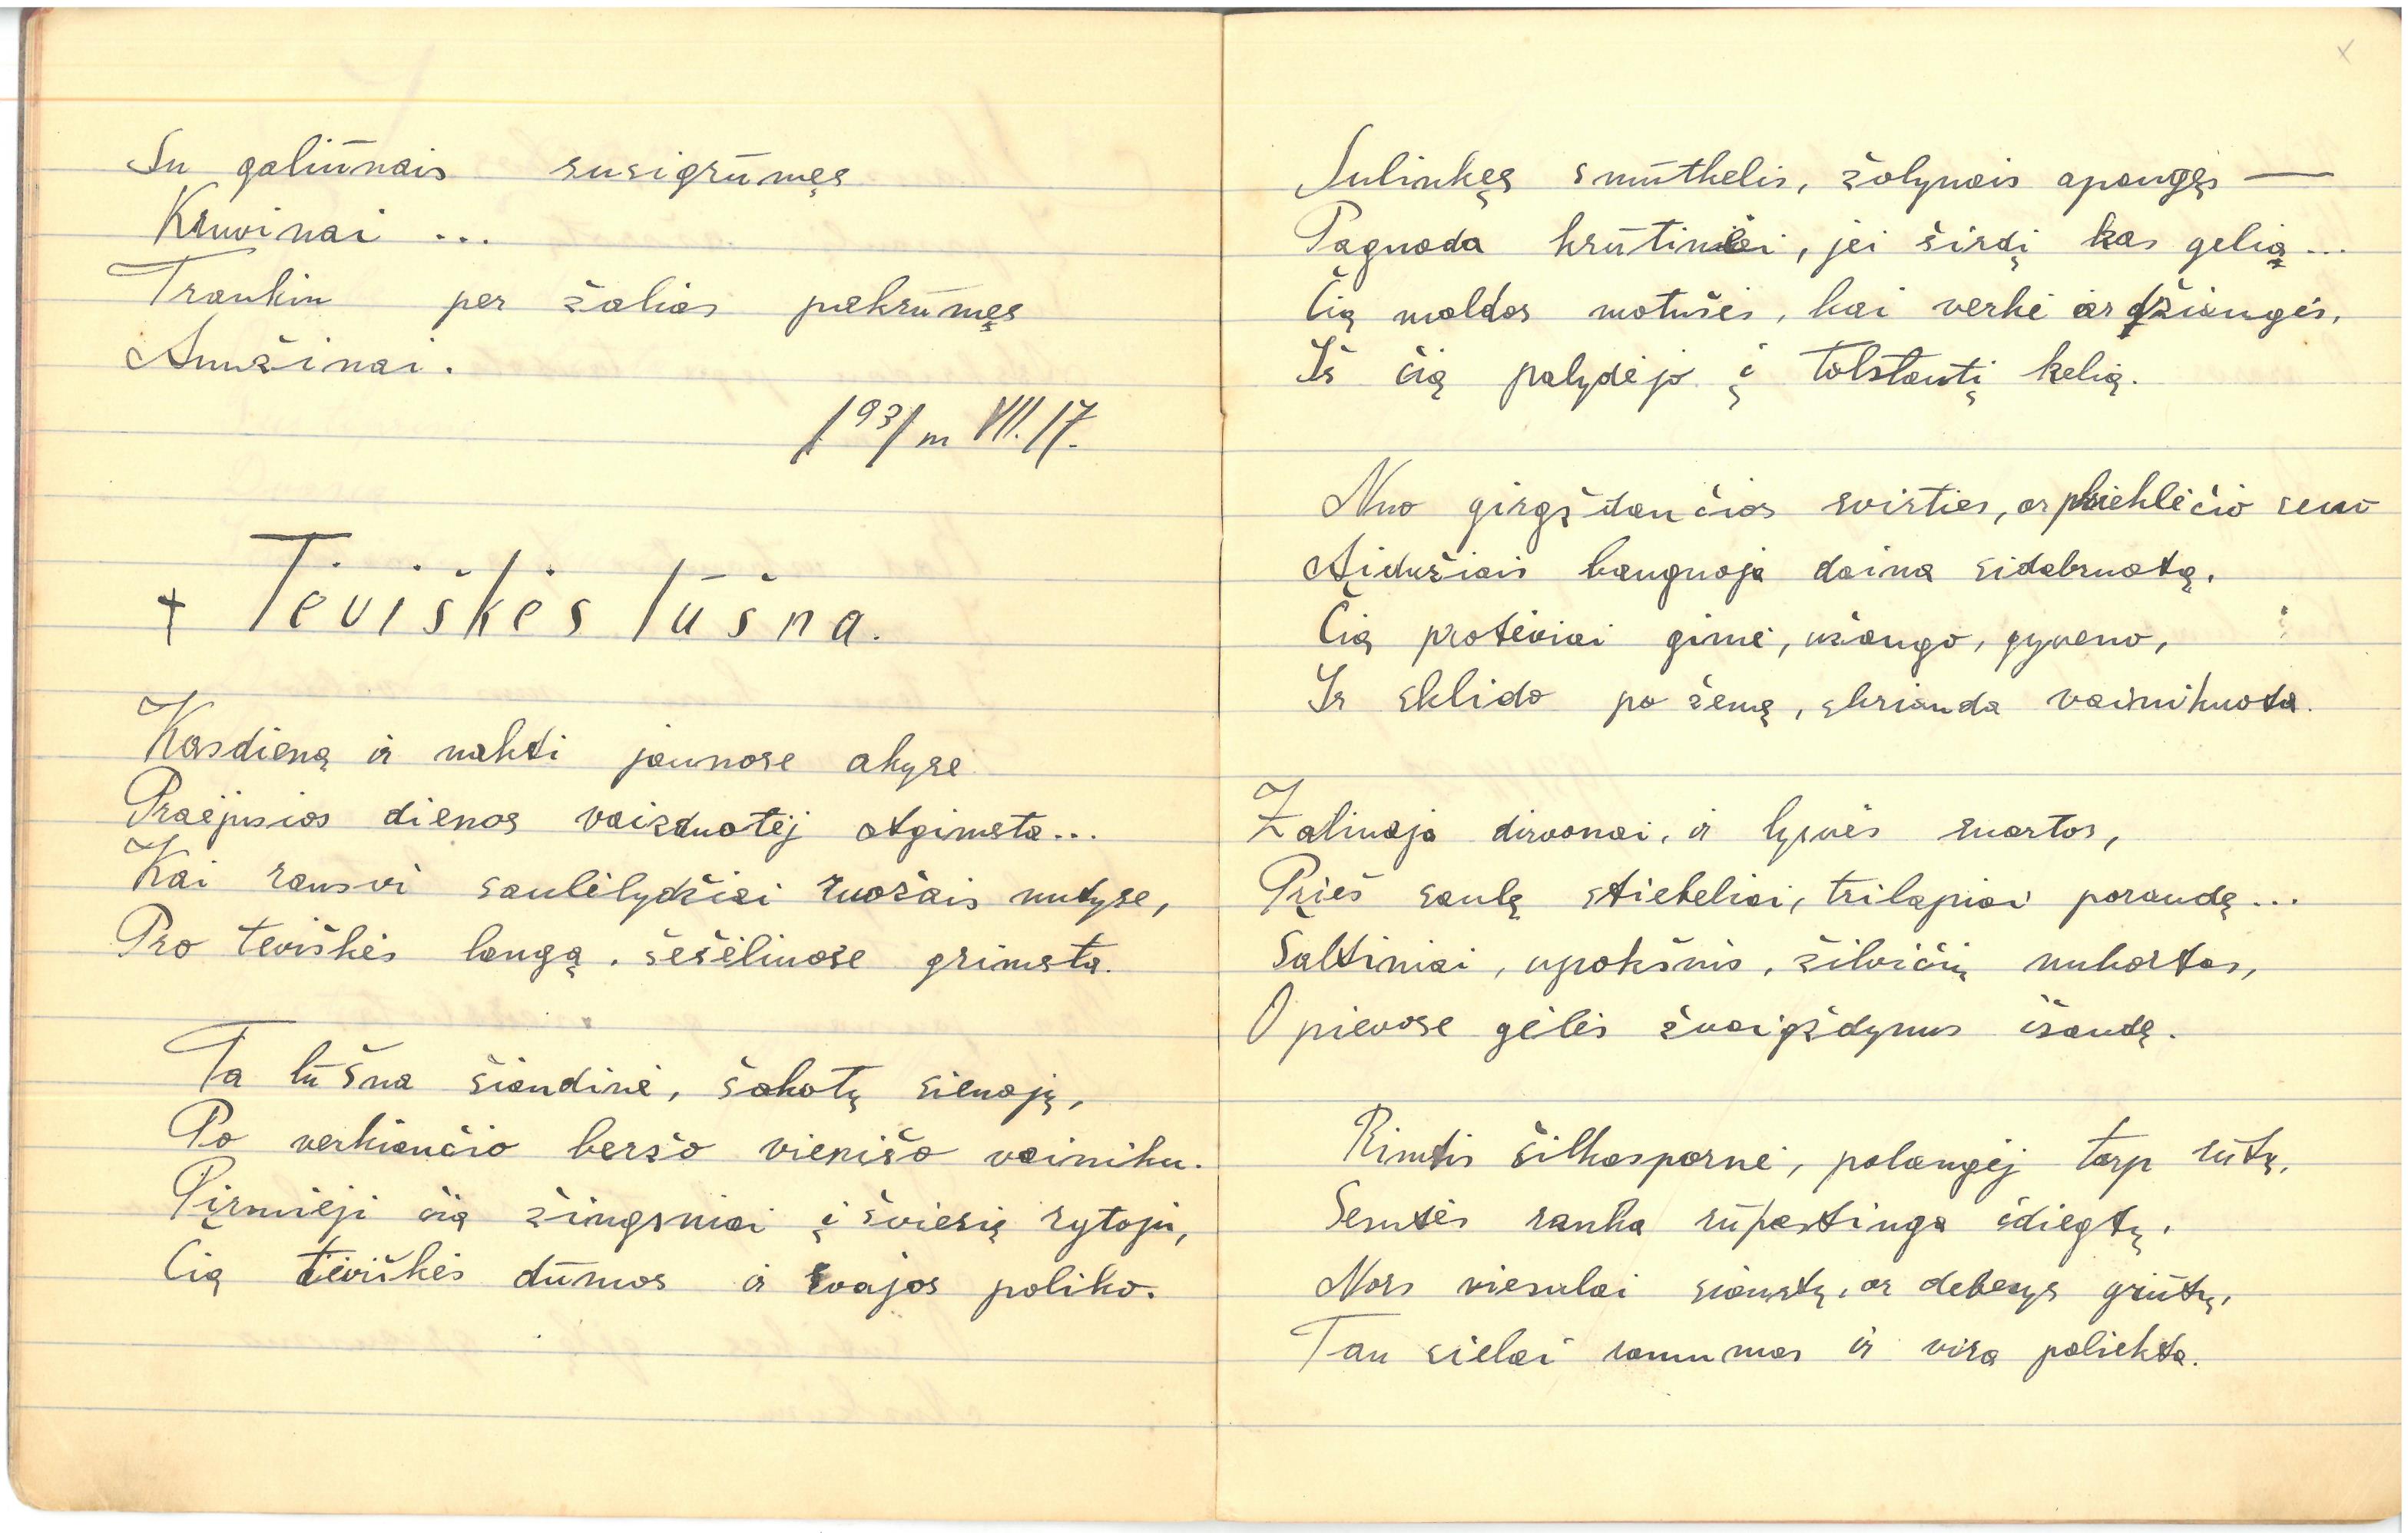 Su galiūnais susigrūmęs
Kruvinai ...
Traukiu per žalias pakrūmęs
Amžinai.
1931 m VII. 17.
+ Tėviškės lūšna.
Kasdieną ir naktį jaunose akyse
Praėjusios dienos vaizduotėj atgimsta...
Kai rausvi saulėlydžiai ruožais nutyse,
Pro tėviškės langą, šešėliuose grimsta.
Ta lūšna šiandinė, šakotų sienojų,
Po verkiančio beržo vienišo vainiku.
Pirmieji čia žingsniai į šviesią rytojų,
Čia tėviškės dūmos ir svajos paliko.
Sulinkęs smūtkelis, žolynais apaugęs —
Paguoda krūtinėi, jei širdį kas gelią...
Čią maldos motušės, kai verkė ar džiaugės,
Iš čią palydėjo į tolstantį kelią.
Nuo girgždančios svirties, ar prieklėčio seno
Aidužiais banguoja daina sidabruotą,
Čią protėviai gimė, užaugo, gyveno,
Ir sklido po žemę, skriauda vainikuota.
Žaliuoja dirvonai, ir lysvės suartos,
Prieš saulę stiebeliai, trilapiai paraudę...
Šaltiniai, upokšnis, žilvičių nukartas,
O pievose gėlės žvaigždynus išaudę.
Rimtis šilkasparnė, palangėj tarp rūtų,
Sesutės ranka rūpestinga įdiegtų,
Nors viesulai siaustų, ar debesys griūtų,
Tau sielai ramumas ir visa paliekta.